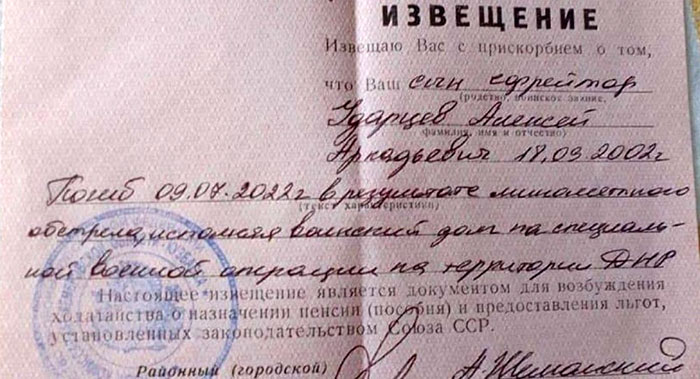 ИЗВЕЩЕНИЕ
Извещаю Вас с прискорбием о том,
что Ваш сын ефрейтор
(родство, воинское звание,
Ударцев Алексей
фамилия, имя и отчество)
Аркадьевич 18.03.2002г
Погиб 09.07.2022г в результате минометного
(текст характеристики)
обстрела, исполняя воинский долг на специаль-
ной военной операции на территории ДНР
Настоящее извещение является документом для возбуждения
ходатайства о назначении пенсии (пособия) и предоставления льгот,
установленных законодательством Союза ССР.
Районный (городской)